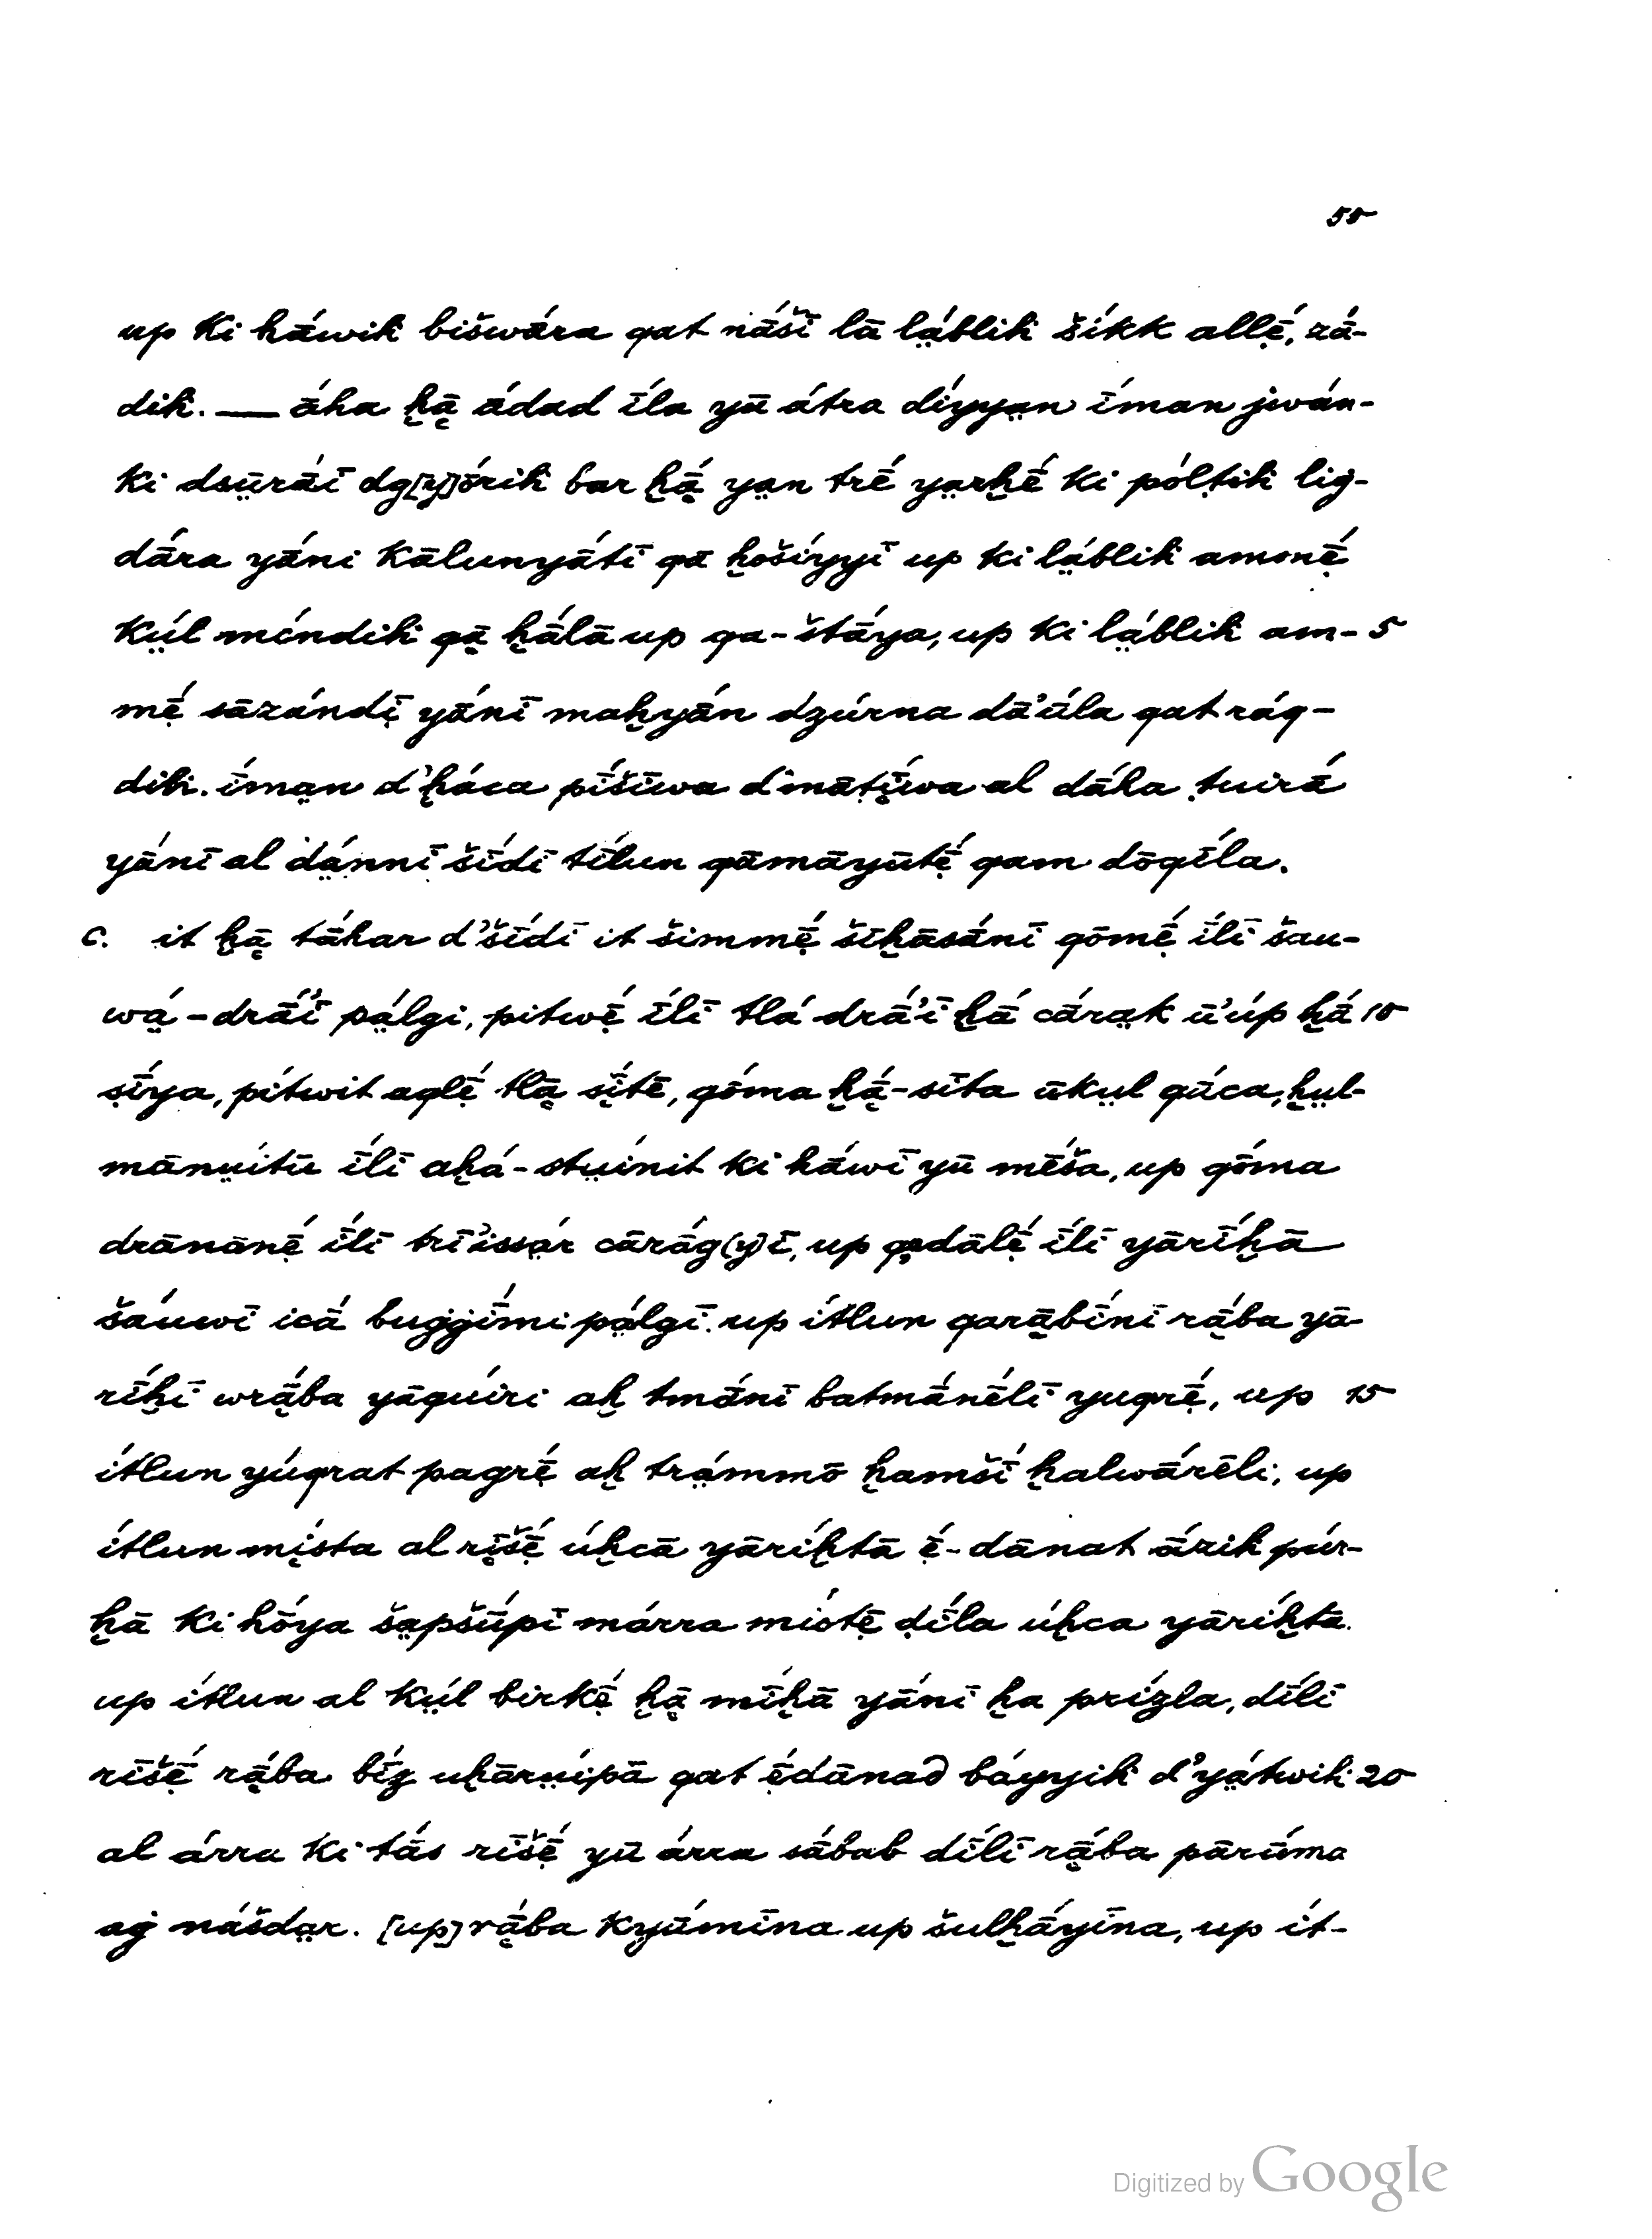 55
up ki hāwiḱ bišwā́ra qat nā́šī lā lạ̈́bliḱ šíkk allẹ̄́, zā́-
diḱ. — āha ḫą̄ ādad īla yū átra díyyạ̈n íman jwán-
ki dsụ̈̄rā́ī dg[y]ōriḱ bar ḫą̄́ yạ̈n trē yạ̈rḫḗ ki póltiḱ lig-
dā́ra yā́ni kālunyā́tī qā ḫošíyyī up ki lạ̈́bliḱ amonẹ̄́
kụ̈́l méndiḱ qą̄ ḫā́lā up qa-štā́ya, up ki lạ̈́bliḱ am- 5
mẹ̄́ sāzándị̄ yā́nī maḫyā́n dzúrna dā’ū́la qat ráq-
diḱ. ímạ̈n d’ḫáca pī́šīwa dmātị̄́wa al dā́ha ṭuirā́
yā́nī al dạ̈́nnī šī́dī tī́lun qāmāyūtẹ̄́ qam dōqī́la.
c. it ḫą̄ tā́har d’šī́dī it šimmẹ̄́ šīḫāsā́nī qōmẹ̄́ ī́lī šau-
wạ̈́-drā́’ī pạ̈́lgi, pitwẹ̄́ ī́lī tlá drā́’ī ḫā́ cā́rạ̈k ū’úp ḫā́ 10
sị̄́ya, pítwit aqlẹ̄́ tlą̄ sị̄́tē, qṓma ḫą̄́-sīta ūkụ̈l qū́ca, ḫụ̈l-
mānụ̈ítū ī́lī aḫá-stụ̈ínit ki hā́wī yū mḗša, up qṓma
drānānẹ̄́ ī́li trī’issạ̈́r cārā́g(y)ī, up qạdālẹ̄́ ī́lī yārī́ḫā
šáuwī icā́ buġġī́mi pạ̈́lgī. up ítlun qarą̄bī́ni rą̄́ba yā-
rī́ḫī wrą̄́ba yāquíri aḫ tmā́nī batmā́nēlī yuqrẹ̄́, up 15
ítlun yúqrat pagrẹ̄́ aḫ trạ̈́mmō ḫamšī́ ḫalwā́rēli; up
ítlun mị́sta al rị̄šẹ̄́ úḫcā yāríḫtā ẹ̄́-dānat ārik púr-
ḫā ki hṓya šạ̈pšū́pī márra místẹ̄ dī́la úḫca yāríḫtā.
up ítlun al kụ̈́l birkẹ̄́ ḫą̄ mī́ḫā yā́nī ḫa prízla, dī́lī
rīšẹ̄́ rą̄́ba bíz uḫārụ̈ípā qat ẹ̄́dānad báyyiḱ d’yạ̈́twiḱ 20
al árra ki tā́s rīšẹ̄́ yū árra sā́bab dī́lī rą̄́ba pārū́ma
aġ nášdạ̈r. [up] rą̄́ba kyū́mīna up šulḫā́yīna, up ít-
Digitized by Google